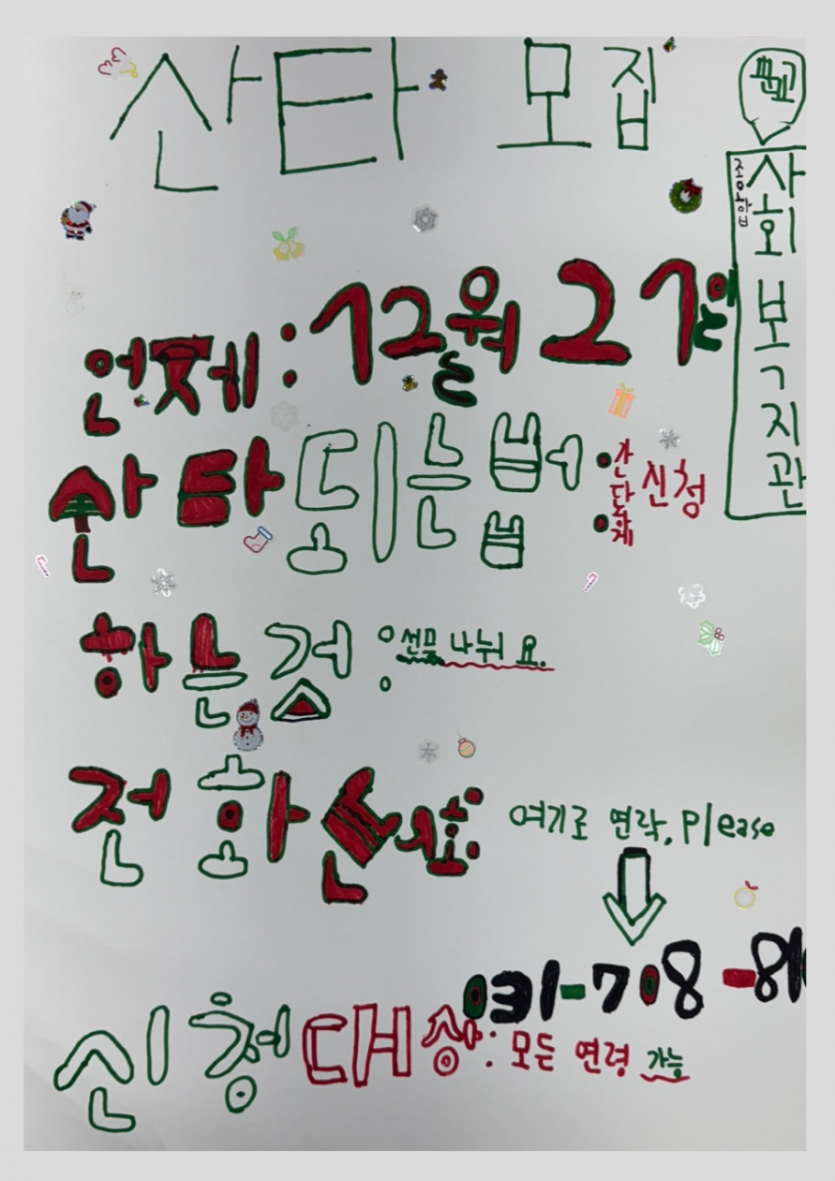 산타 모집
판교
종합
사회
복지관
언제: 12월 21일
산타 되는 법: 간단하게 신청
하는 것: 선물 나눠 요.
전화
여기로 연락, please
031-708-81
신청 대상: 모든 연령 가능